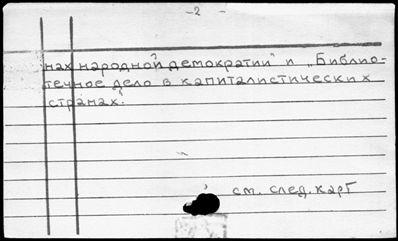 -2 -
нах народной демократии" и „Библио-
течное дело в капиталистических
странах".
см. след. карт